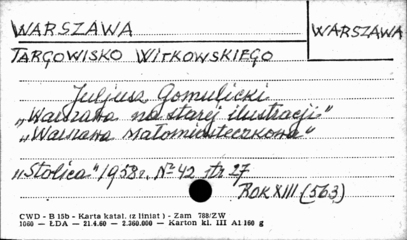 WARSZAWA
WARSZAWA
TARGOWISKO WITKOWSKIEGO
Juljusz Gomulicki
„Warszawa na starej ilustracji”
„Warszawa małomiasteczkowa”
„Stolica” 1958 r. Nº 42 str 27
ROK XIII (563)
CWD - B 15b - Karta katal. (z liniat) - Zam 788/ZW
1060 — ŁDA — 21.4.60 — 2.360.000 — Karton kl. III A1 160 g